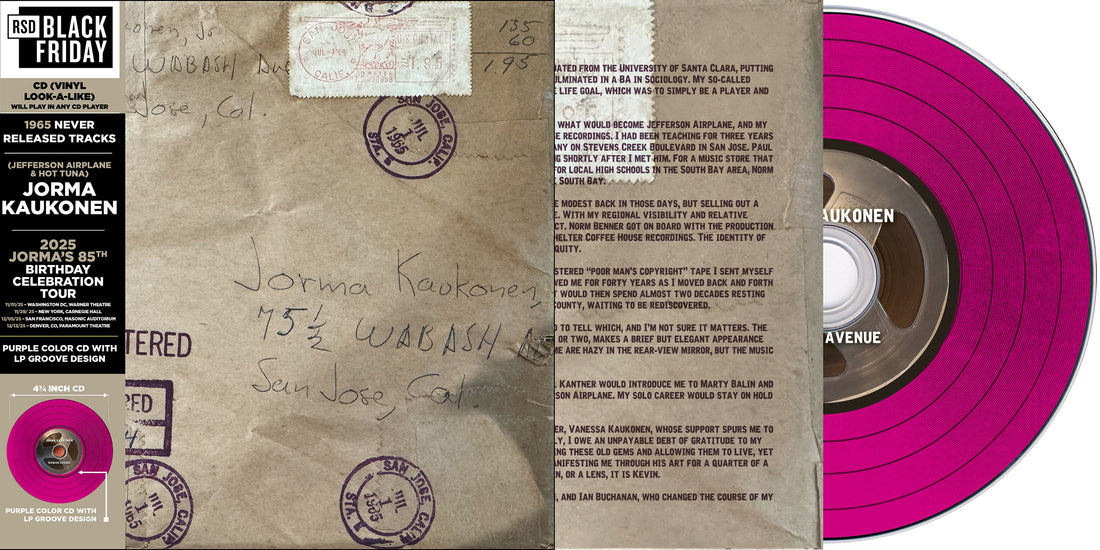 RSD BLACK
FRIDAY
CD (VINYL
LOOK-A-LIKE)
WILL PLAY IN ANY CD PLAYER
1965 NEVER
RELEASED TRACKS
(JEFFERSON AIRPLANE
& HOT TUNA)
JORMA
KAUKONEN
2025
JORMA'S 85TH
BIRTHDAY
CELEBRATION
TOUR
11/01/25 - WASHINGTON DC, WARNER THEATRE
11/29/25 - NEW YORK, CARNEGIE HALL
12/05/25 - SAN FRANCISCO, MASONIC AUDITORIUM
12/13/25 - DENVER, CO, PARAMOUNT THEATRE
PURPLE COLOR CD WITH
LP GROOVE DESIGN
4¾ INCH CD
JORMA KAUKONEN
WABASH AVENUE
PURPLE COLOR CD WITH
LP GROOVE DESIGN
onen, Jr
WABASH Ave
Jose, Cal.
SAN JOSE
CALIF.
135
60
1.95
SAN JOSE, CALIF.
JUL
1
1965
STA.
Jorma Kaukonen,
75½ WABASH
San Jose, Cal.
TERED
RED
SAN JOSE, CALIF.
JUL
1
1965
SAN JOSE, CALIF.
JUL
1
1965
STA.
ATED FROM THE UNIVERSITY OF SANTA CLARA, PUTTING
ULMINATED IN A BA IN SOCIOLOGY. MY SO-CALLED
E LIFE GOAL, WHICH WAS TO SIMPLY BE A PLAYER AND
WHAT WOULD BECOME JEFFERSON AIRPLANE, AND MY
SE RECORDINGS. I HAD BEEN TEACHING FOR THREE YEARS
ANY ON STEVENS CREEK BOULEVARD IN SAN JOSE. PAUL
G SHORTLY AFTER I MET HIM. FOR A MUSIC STORE THAT
FOR LOCAL HIGH SCHOOLS IN THE SOUTH BAY AREA, NORM
SOUTH BAY.
E MODEST BACK IN THOSE DAYS, BUT SELLING OUT A
E. WITH MY REGIONAL VISIBILITY AND RELATIVE
CT. NORM BENNER GOT ON BOARD WITH THE PRODUCTION
HELTER COFFEE HOUSE RECORDINGS. THE IDENTITY OF
QUITY.
STERED "POOR MAN'S COPYRIGHT" TAPE I SENT MYSELF
WED ME FOR FORTY YEARS AS I MOVED BACK AND FORTH
T WOULD THEN SPEND ALMOST TWO DECADES RESTING
OUNTY, WAITING TO BE REDISCOVERED.
D TO TELL WHICH, AND I'M NOT SURE IT MATTERS. THE
OR TWO, MAKES A BRIEF BUT ELEGANT APPEARANCE
ME ARE HAZY IN THE REAR-VIEW MIRROR, BUT THE MUSIC
L KANTNER WOULD INTRODUCE ME TO MARTY BALIN AND
SON AIRPLANE. MY SOLO CAREER WOULD STAY ON HOLD
ER, VANESSA KAUKONEN, WHOSE SUPPORT SPURS ME TO
LY, I OWE AN UNPAYABLE DEBT OF GRATITUDE TO MY
ING THESE OLD GEMS AND ALLOWING THEM TO LIVE, YET
ANIFESTING ME THROUGH HIS ART FOR A QUARTER OF A
N, OR A LENS, IT IS KEVIN.
, AND IAN BUCHANAN, WHO CHANGED THE COURSE OF MY
AUKONEN
AVENUE